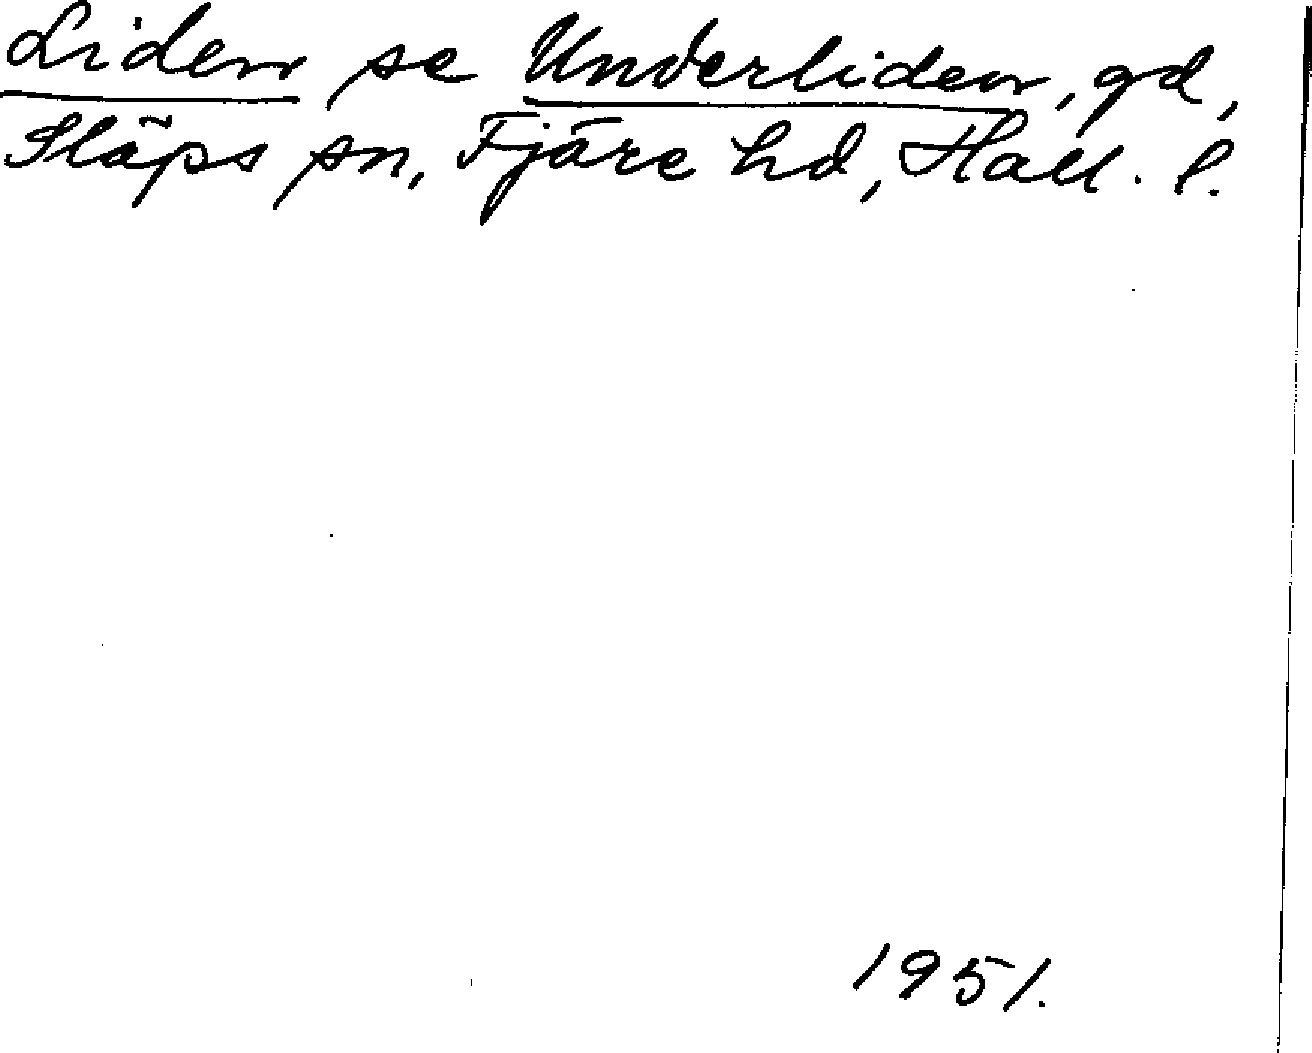 Liden se Underliden, gd,
Släps sn, Fjäre hd, Hall. l.
1951.